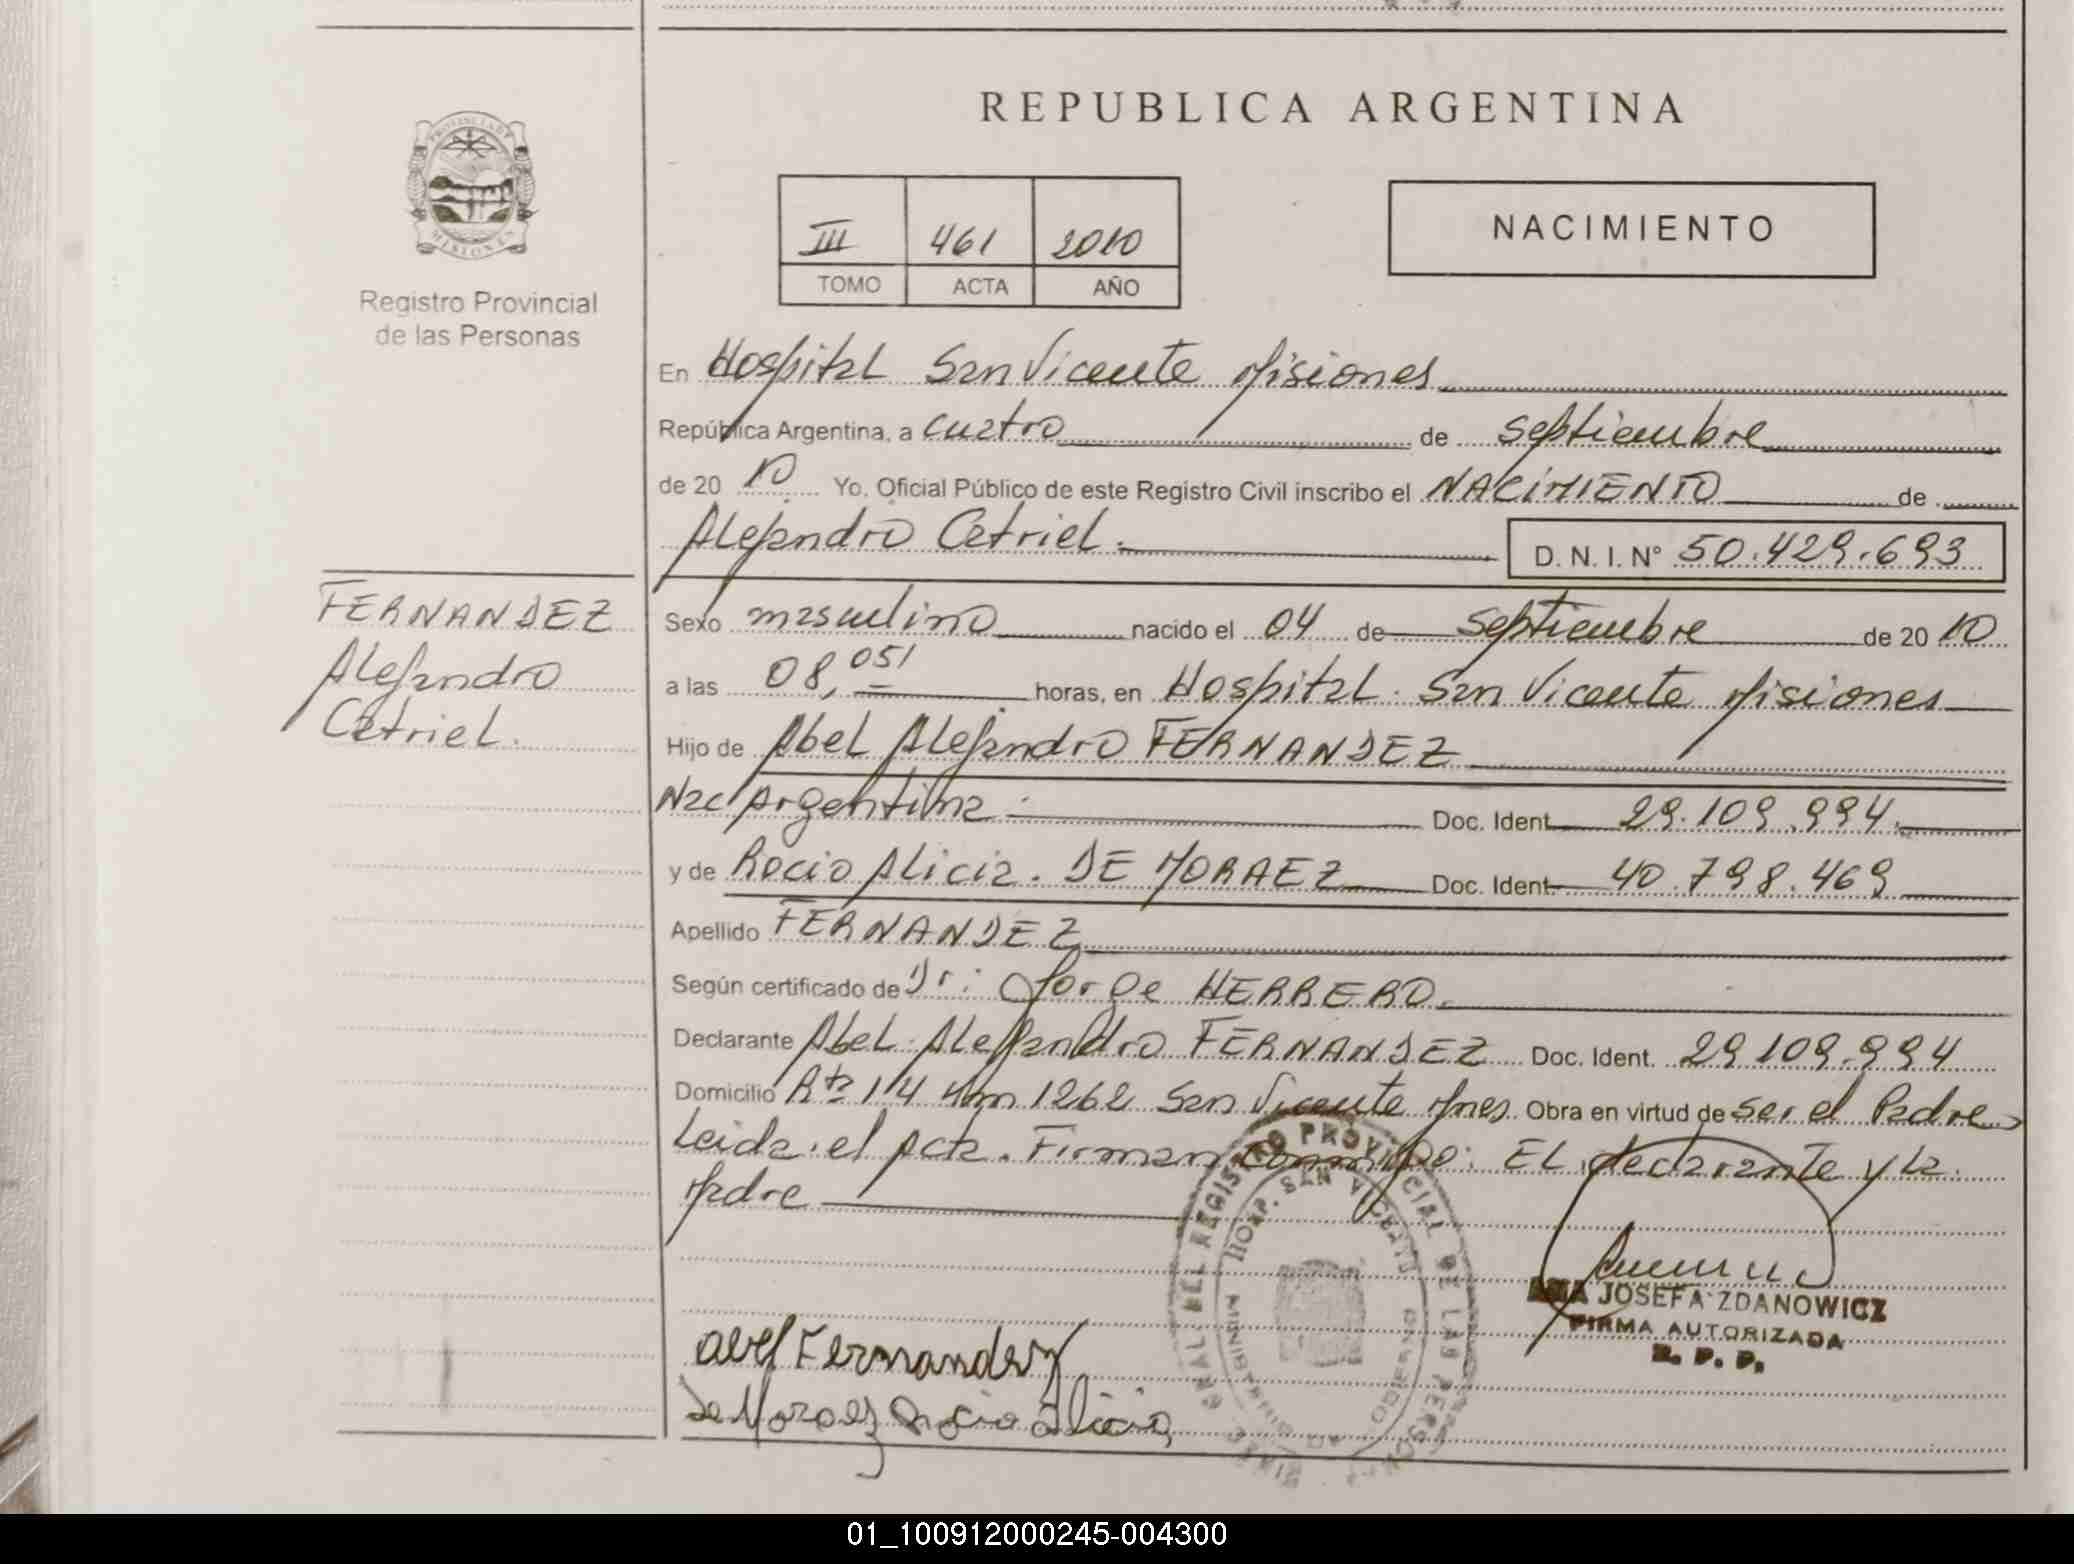 REPUBLICA ARGENTINA
PROVINCIA DE MISIONES
Registro Provincial
de las Personas
III 461 2010
TOMO ACTA AÑO
NACIMIENTO
En Hospital San Vicente Misiones
República Argentina, a cuatro de septiembre
de 20 10 Yo, Oficial Público de este Registro Civil inscribo el NACIMIENTO de
Alejandro Catriel. D. N. I. N° 50.429.693
FERNANDEZ
Alejandro
Catriel.
Sexo masculino nacido el 04 de septiembre de 20 10
a las 08,05' horas, en Hospital. San Vicente Misiones
Hijo de Abel Alejandro FERNANDEZ
Nac Argentina Doc. Ident. 29.109.994.
y de Rocio Alicia. DE MORAEZ Doc. Ident. 40.798.469
Apellido FERNANDEZ
Según certificado de Dr: Jorge HERRERO.
Declarante Abel Alejandro FERNANDEZ Doc. Ident. 29.109.994
Domicilio Rta 14 Km 1262 San Vicente Mnes. Obra en virtud de ser el Padre
Leida el Acta. Firman conmigo: El declarante y la
Madre
REGISTRO PROVINCIAL DE LAS PERSONAS
HOSP. SAN VICENTE
MINISTERIO DE GOBIERNO
ANA JOSEFA ZDANOWICZ
FIRMA AUTORIZADA
R. P. P.
Abel Fernandez
De Moraez Rocio Alicia
01_100912000245-004300